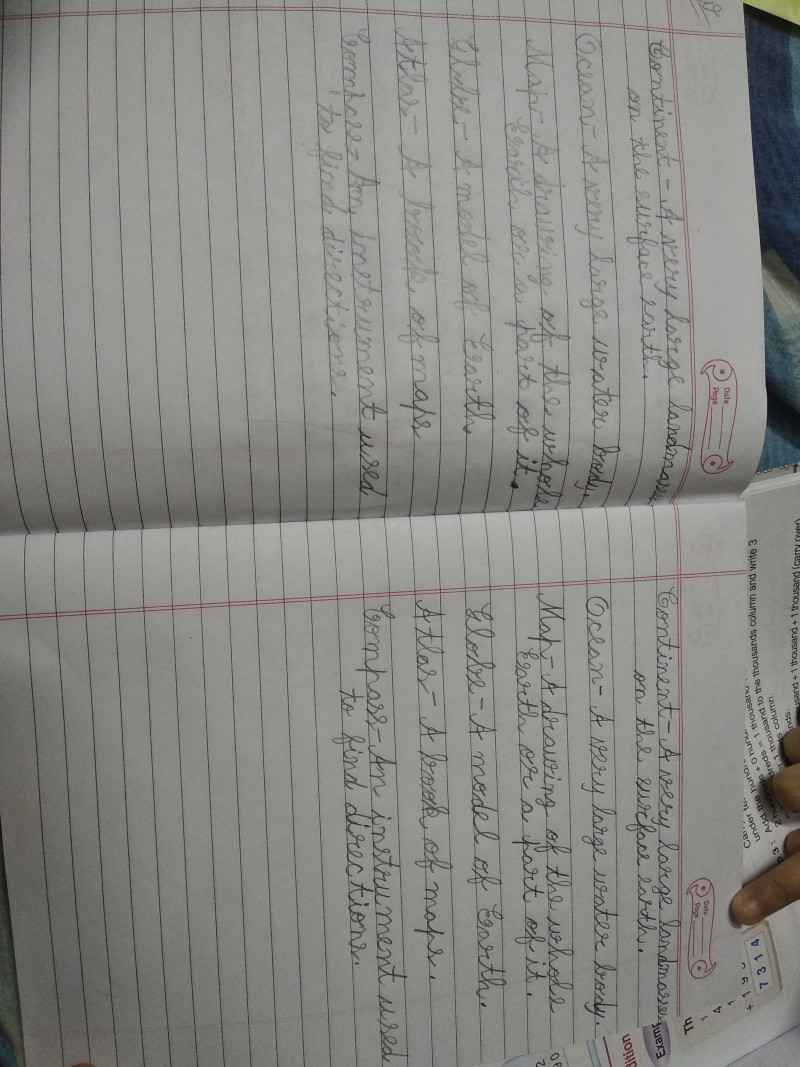 Date
Page
Continent - A very large landmasses
on the surface earth.
Ocean - A very large water body.
Map - A drawing of the whole
Earth or a part of it.
Globe - A model of Earth
Atlas - A book of maps
Compass - An instrument used
to find directions.
Date
Page
Continent - A very large landmasses
on the surface earth.
Ocean - A very large water body.
Map - A drawing of the whole
Earth or a part of it.
Globe - A model of Earth.
Atlas - A book of maps.
Compass - An instrument used
to find directions.
thousand + 1 thousand (carry over)
column and write 3
= 1 thousand to the thousands column.
3 : Add the
dition
Examp
Th
7 3 1 4